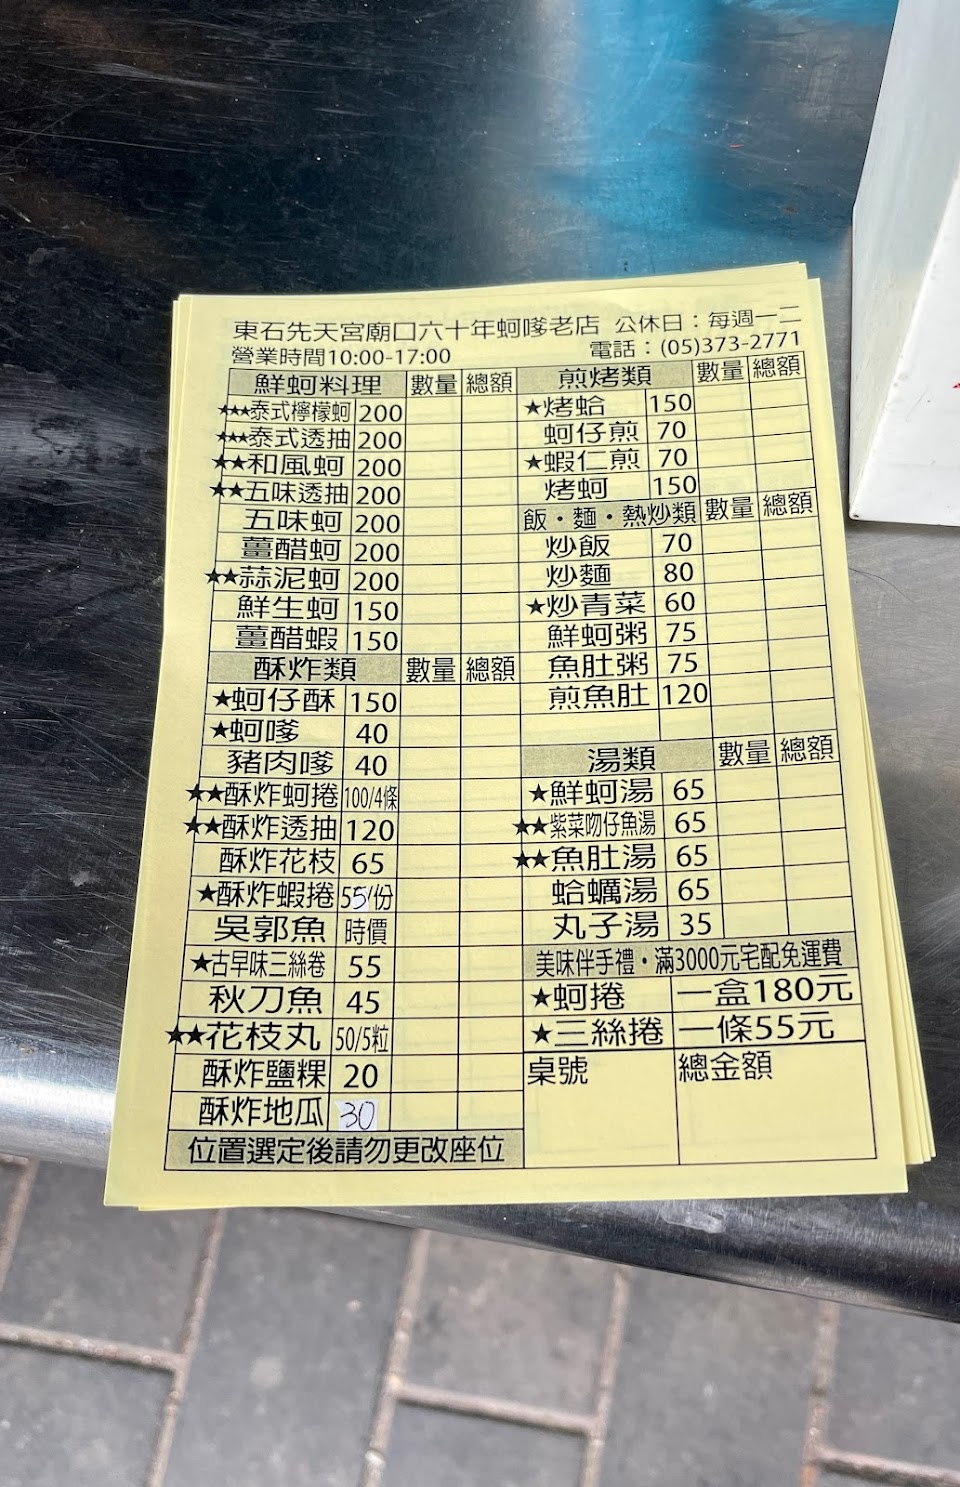 東石先天宮廟口六十年蚵嗲老店 公休日：每週一二
營業時間10:00-17:00 電話：(05)373-2771
鮮蚵料理 數量 總額
★★★泰式檸檬蚵 200
★★★泰式透抽 200
★★和風蚵 200
★★五味透抽 200
五味蚵 200
薑醋蚵 200
★★蒜泥蚵 200
鮮生蚵 150
薑醋蝦 150
酥炸類 數量 總額
★蚵仔酥 150
★蚵嗲 40
豬肉嗲 40
★★酥炸蚵捲 100/4條
★★酥炸透抽 120
酥炸花枝 65
★酥炸蝦捲 55/份
吳郭魚 時價
★古早味三絲卷 55
秋刀魚 45
★★花枝丸 50/5粒
酥炸鹽粿 20
酥炸地瓜 30
位置選定後請勿更改座位
煎烤類 數量 總額
★烤蛤 150
蚵仔煎 70
★蝦仁煎 70
烤蚵 150
飯・麵・熱炒類 數量 總額
炒飯 70
炒麵 80
★炒青菜 60
鮮蚵粥 75
魚肚粥 75
煎魚肚 120
湯類 數量 總額
★鮮蚵湯 65
★★紫菜吻仔魚湯 65
★★魚肚湯 65
蛤蠣湯 65
丸子湯 35
美味伴手禮・滿3000元宅配免運費
★蚵捲 一盒180元
★三絲捲 一條55元
桌號 總金額